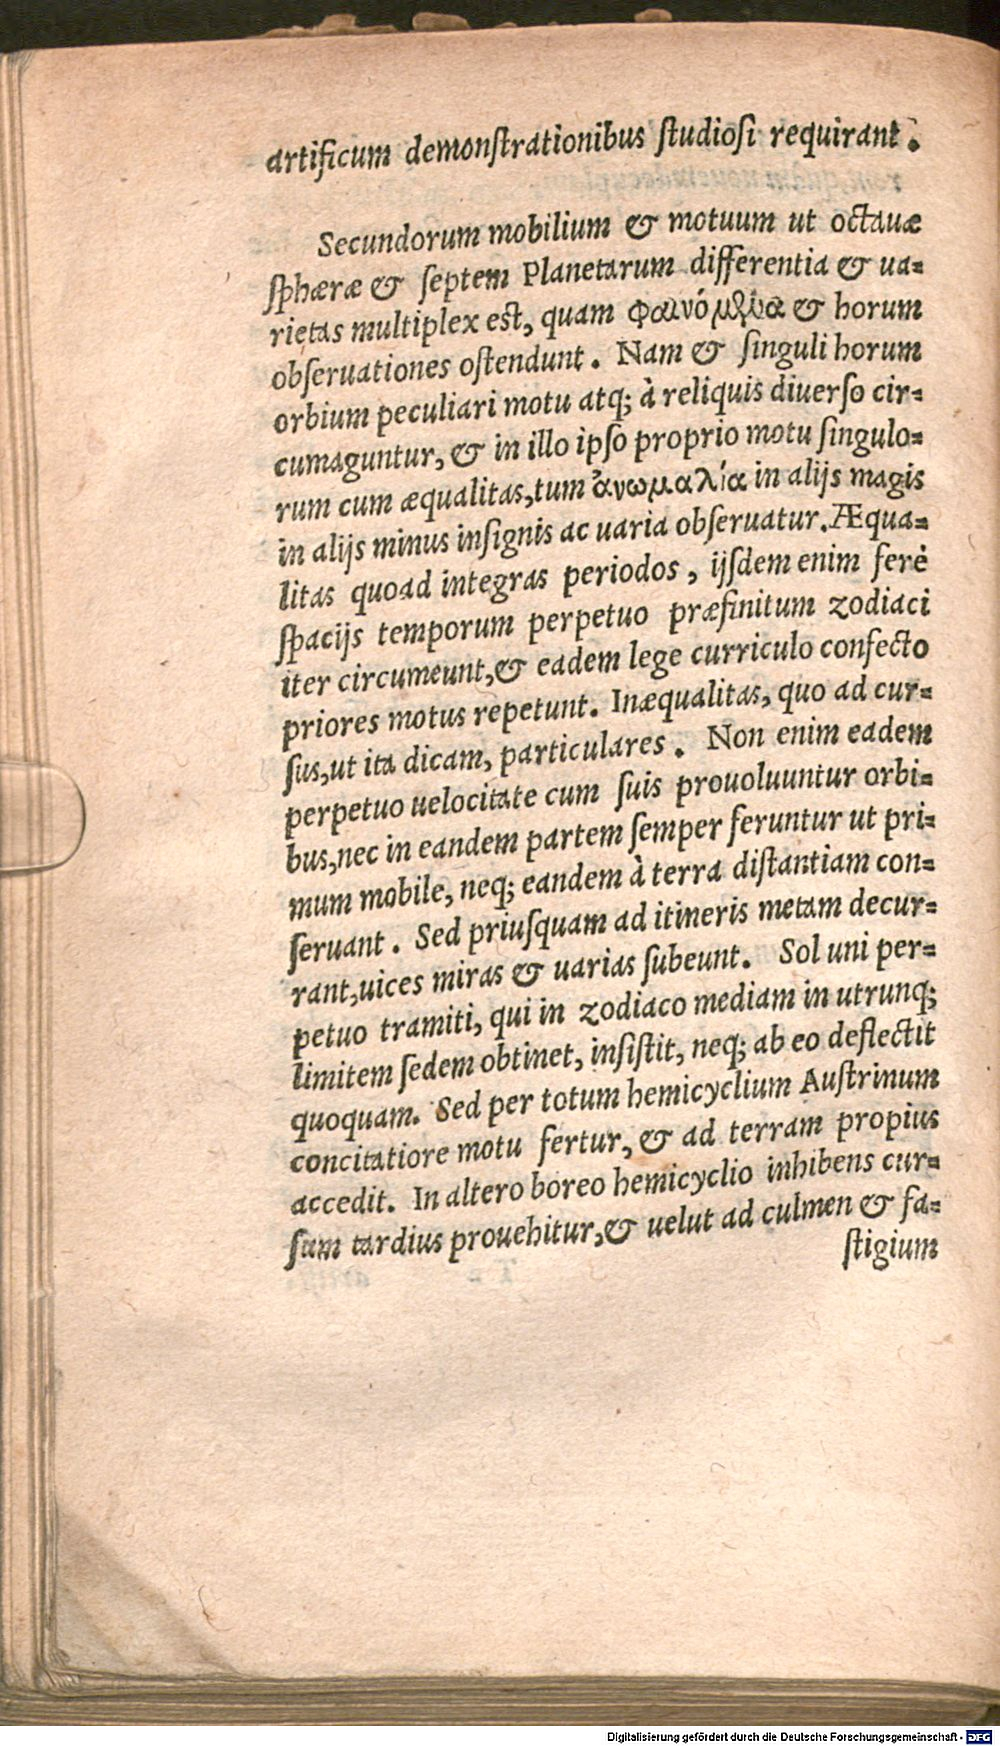 artificum demonſtrationibus ſtudioſi requirant.
Secundorum mobilium & motuum ut octauæ
ſphæræ & ſeptem Planetarum differentia & ua=
rietas multiplex est, quam φαινόμενα & horum
obſeruationes oſtendunt. Nam & ſinguli horum
orbium peculiari motu atq; à reliquis diuerſo cir=
cumaguntur, & in illo ipſo proprio motu ſingulo=
rum cum æqualitas, tum ἀνωμαλία in alijs magis
in alijs minus inſignis ac uaria obſeruatur. Æqua=
litas quoad integras periodos, ijſdem enim ferè
ſpacijs temporum perpetuo præfinitum zodiaci
iter circumeunt, & eadem lege curriculo confecto
priores motus repetunt. Inæqualitas, quo ad cur=
ſus, ut ita dicam, particulares. Non enim eadem
perpetuo uelocitate cum ſuis prouoluuntur orbi=
bus, nec in eandem partem ſemper feruntur ut pri=
mum mobile, neq; eandem à terra diſtantiam con=
ſeruant. Sed priuſquam ad itineris metam decur=
rant, uices miras & uarias ſubeunt. Sol uni per=
petuo tramiti, qui in zodiaco mediam in utrunq;
limitem ſedem obtinet, inſiſtit, neq; ab eo deflectit
quoquam. Sed per totum hemicyclium Auſtrinum
concitatiore motu fertur, & ad terram propius
accedit. In altero boreo hemicyclio inhibens cur=
ſum tardius prouehitur, & uelut ad culmen & fa=
ſtigium
Digitalisierung gefördert durch die Deutsche Forschungsgemeinschaft - DFG